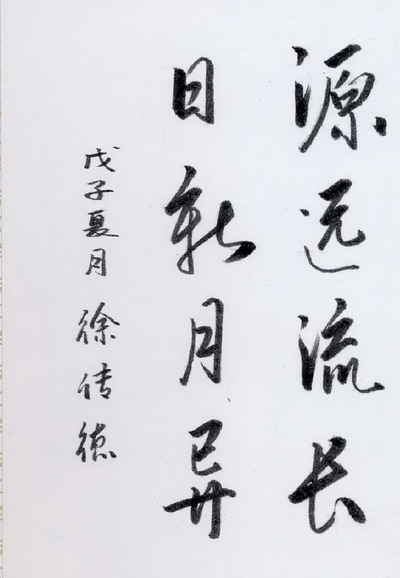 源远流长
日新月异
戊子夏月 徐传德